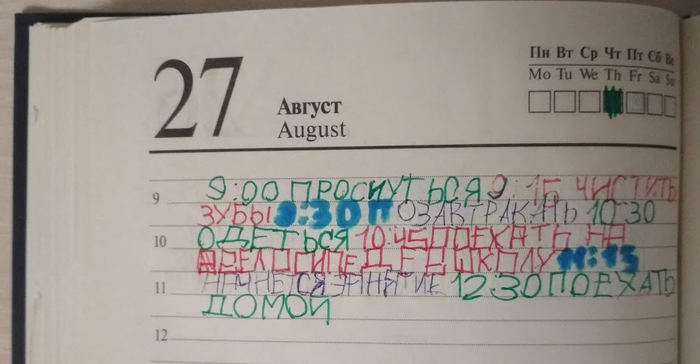 27
Август
August
Пн Вт Ср Чт Пт Сб Вс
Mo Tu We Th Fr Sa Su
9
9:00 ПРОСНУТЬСЯ 9:15 ЧИСТИТЬ
ЗУБЫ 9:30 ПОЗАВТРАКАТЬ 10:30
10
ОДЕТЬСЯ 10:45 ПОЕХАТЬ НА
ВЕЛОСИПЕДЕ В ШКОЛУ 11:15
11
НАЧНЕТСЯ ЗАНЯТИЕ 12:30 ПОЕХАТЬ
ДОМОЙ
12